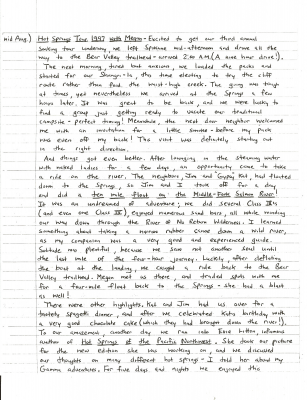 Mid Aug.) Hot Springs Tour 1997 with Megan - Excited to get our third annual
soaking tour underway, we left Spokane mid-afternoon and drove all the
way to the Bear Valley trailhead - arrived 2:00 A.M. (A nine hour drive!).
The next morning, tired but anxious, we loaded the packs and
started for our Shangri-la, this time electing to try the cliff
route rather than ford the waist-high creek. The going was tough
at times, yet nevertheless we arrived at the Springs a few
hours later. It was great to be back, and we were lucky to
find a group just getting ready to vacate our traditional
campsite - perfect timing! Meanwhile, the next door neighbor welcomed
me with an invitation for a little smoke - before my pack
was even off my back! This visit was definitely starting out
in the right direction.
And things got even better. After lounging in the steaming water
with naked ladies for a few days, an opportunity came to take
a ride on the river. The neighbors, Jim and Gypsy Kat, had floated
down to the Springs, so Jim and I took off for a day
and did a ten mile float on the Middle-Fork Salmon River.
It was an unbelievable adventure; we did several Class II's
(and even one Class III), enjoyed numerous sand bars, all while winding
our way down through the River of No Return Wilderness. I learned
something about taking a narrow rubber canoe down a wild river,
as my companion was a very good and experienced guide.
Solitude was plentiful, because we saw not another soul until
the last mile of the four-hour journey. Luckily, after deflating
the boat at the landing, we caught a ride back to the Bear
Valley trailhead. Megan met us there, and traded spots with me
for a four-mile float back to the Springs - she had a blast
as well!
There were other highlights. Kat and Jim had us over for a
tasty spagetti dinner, and after we celebrated Kat's birthday with
a very good chocolate cake (which they had brought down the river!).
To our amazement, another day we ran into Evie Litton, infamous
author of Hot Springs of the Pacific Northwest. She took our picture
for the new edition she was working on, and we discussed
our thoughts on many different hot springs - I told her about my
Gamma adventures. For five days and nights we enjoyed this